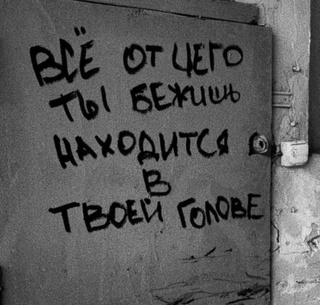 ВСЁ ОТ ЧЕГО
ТЫ БЕЖИШЬ
НАХОДИТСЯ
В
ТВОЕЙ ГОЛОВЕ